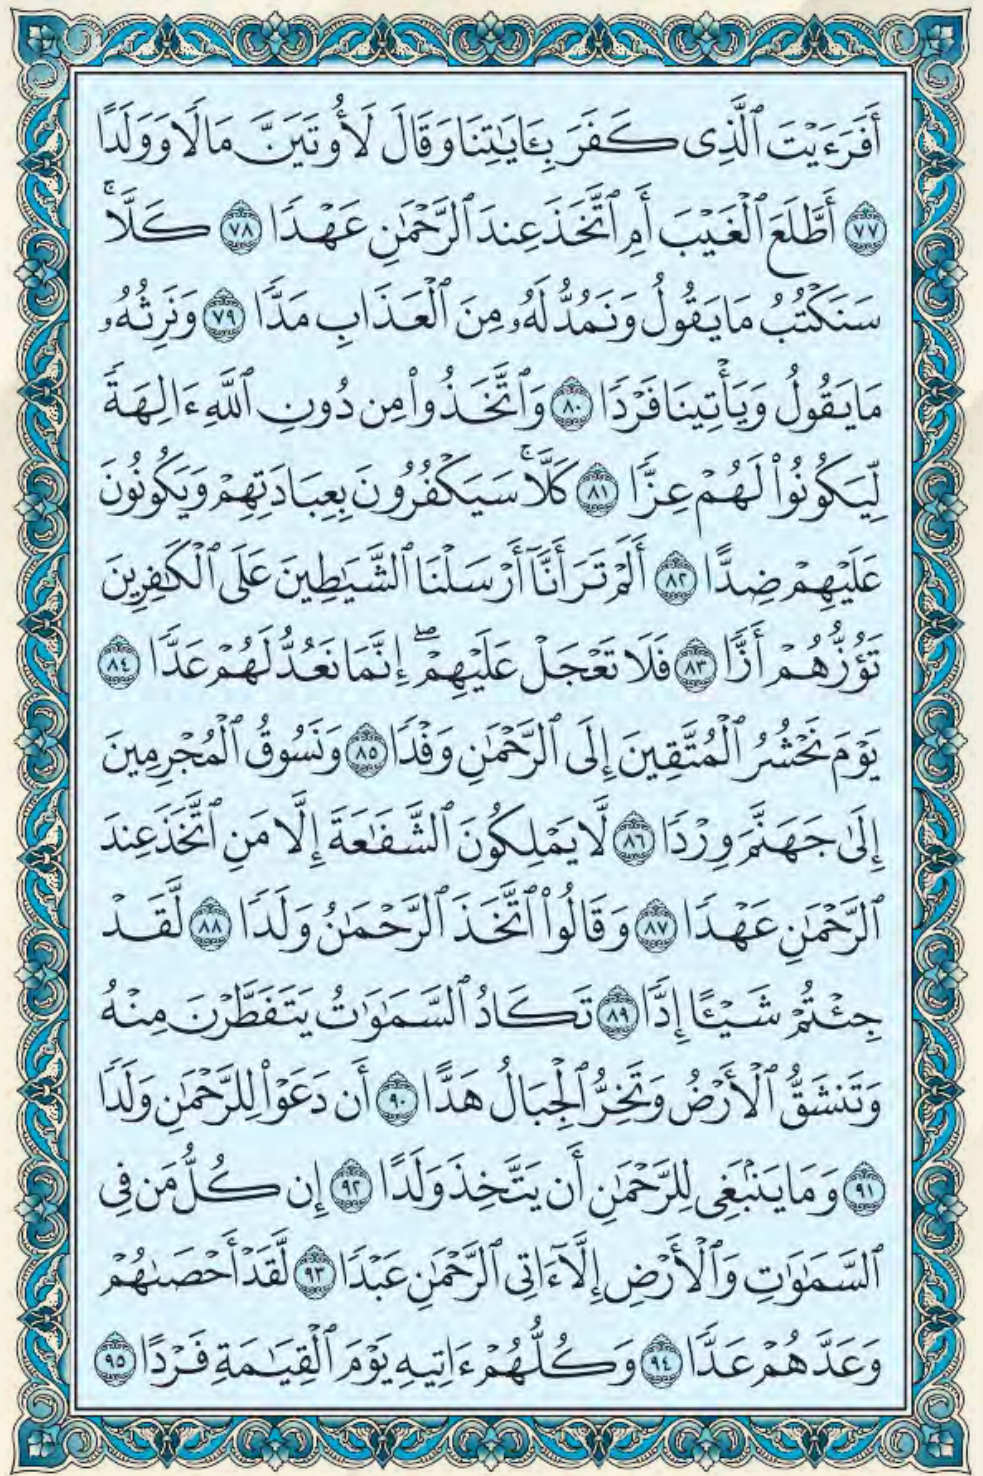 أَفَرَءَيْتَ ٱلَّذِى كَفَرَ بِـَٔايَـٰتِنَا وَقَالَ لَأُوتَيَنَّ مَالًا وَوَلَدًا
﴿٧٧﴾ أَطَّلَعَ ٱلْغَيْبَ أَمِ ٱتَّخَذَ عِندَ ٱلرَّحْمَـٰنِ عَهْدًا ﴿٧٨﴾ كَلَّا ۚ
سَنَكْتُبُ مَا يَقُولُ وَنَمُدُّ لَهُۥ مِنَ ٱلْعَذَابِ مَدًّا ﴿٧٩﴾ وَنَرِثُهُۥ
مَا يَقُولُ وَيَأْتِينَا فَرْدًا ﴿٨٠﴾ وَٱتَّخَذُوا۟ مِن دُونِ ٱللَّهِ ءَالِهَةً
لِّيَكُونُوا۟ لَهُمْ عِزًّا ﴿٨١﴾ كَلَّا ۚ سَيَكْفُرُونَ بِعِبَادَتِهِمْ وَيَكُونُونَ
عَلَيْهِمْ ضِدًّا ﴿٨٢﴾ أَلَمْ تَرَ أَنَّآ أَرْسَلْنَا ٱلشَّيَـٰطِينَ عَلَى ٱلْكَـٰفِرِينَ
تَؤُزُّهُمْ أَزًّا ﴿٨٣﴾ فَلَا تَعْجَلْ عَلَيْهِمْ ۖ إِنَّمَا نَعُدُّ لَهُمْ عَدًّا ﴿٨٤﴾
يَوْمَ نَحْشُرُ ٱلْمُتَّقِينَ إِلَى ٱلرَّحْمَـٰنِ وَفْدًا ﴿٨٥﴾ وَنَسُوقُ ٱلْمُجْرِمِينَ
إِلَىٰ جَهَنَّمَ وِرْدًا ﴿٨٦﴾ لَّا يَمْلِكُونَ ٱلشَّفَـٰعَةَ إِلَّا مَنِ ٱتَّخَذَ عِندَ
ٱلرَّحْمَـٰنِ عَهْدًا ﴿٨٧﴾ وَقَالُوا۟ ٱتَّخَذَ ٱلرَّحْمَـٰنُ وَلَدًا ﴿٨٨﴾ لَّقَدْ
جِئْتُمْ شَيْـًٔا إِدًّا ﴿٨٩﴾ تَكَادُ ٱلسَّمَـٰوَٰتُ يَتَفَطَّرْنَ مِنْهُ
وَتَنشَقُّ ٱلْأَرْضُ وَتَخِرُّ ٱلْجِبَالُ هَدًّا ﴿٩٠﴾ أَن دَعَوْا۟ لِلرَّحْمَـٰنِ وَلَدًا
﴿٩١﴾ وَمَا يَنۢبَغِى لِلرَّحْمَـٰنِ أَن يَتَّخِذَ وَلَدًا ﴿٩٢﴾ إِن كُلُّ مَن فِى
ٱلسَّمَـٰوَٰتِ وَٱلْأَرْضِ إِلَّآ ءَاتِى ٱلرَّحْمَـٰنِ عَبْدًا ﴿٩٣﴾ لَّقَدْ أَحْصَىٰهُمْ
وَعَدَّهُمْ عَدًّا ﴿٩٤﴾ وَكُلُّهُمْ ءَاتِيهِ يَوْمَ ٱلْقِيَـٰمَةِ فَرْدًا ﴿٩٥﴾